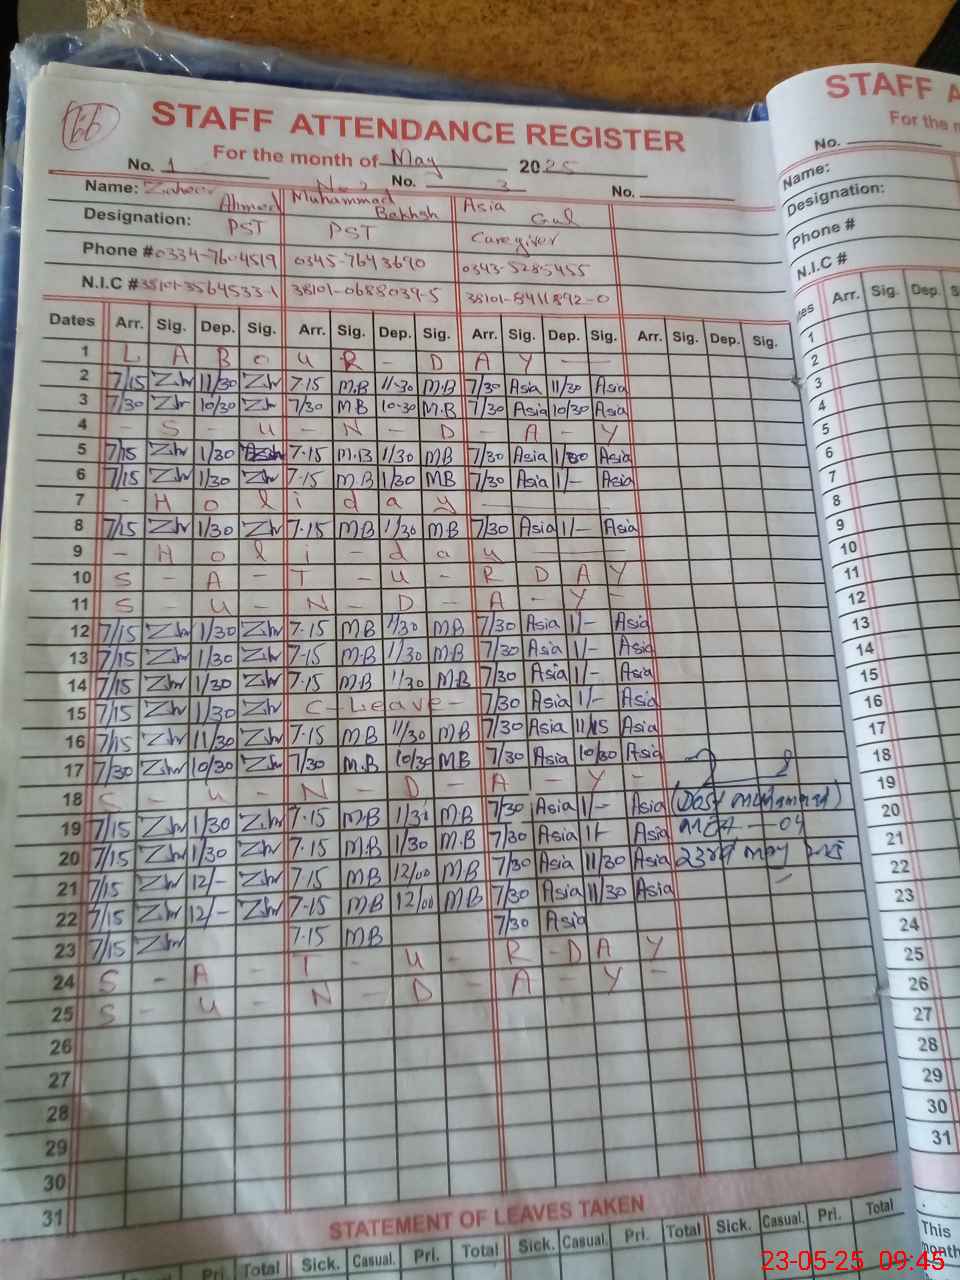 66
STAFF ATTENDANCE REGISTER
For the month of May 2025
No. 1 No. 2 No. 3 No.
Name: Zaheer Ahmed Muhammad Bakhsh Asia Gul
Designation: PST PST Caregiver
Phone # 0334-7604519 0345-7643690 0343-5285455
N.I.C # 38101-3564533-1 38101-0688039-5 38101-8411892-0
Dates Arr. Sig. Dep. Sig. Arr. Sig. Dep. Sig. Arr. Sig. Dep. Sig. Arr. Sig. Dep. Sig.
1 L A B O U R - D A Y
2 7/15 Zhr 11/30 Zhr 7-15 M.B 11-30 M.B 7/30 Asia 11/30 Asia
3 7/30 Zhr 10/30 Zhr 7/30 MB 10-30 M.B 7/30 Asia 10/30 Asia
4 - S - U - N - D - A - Y
5 7/15 Zhr 1/30 7-15 M.B 1/30 MB 7/30 Asia 1/30 Asia
6 7/15 Zhr 1/30 Zhr 7-15 M.B 1/30 MB 7/30 Asia 1/- Asia
7 - H o l i d a y
8 7/15 Zhr 1/30 Zhr 7-15 MB 1/30 MB 7/30 Asia 1/- Asia
9 - H o l i - d a y
10 S - A - T - U - R D A Y
11 S - U - N - D - A - Y -
12 7/15 Zhr 1/30 Zhr 7-15 MB 1/30 MB 7/30 Asia 1/- Asia
13 7/15 Zhr 1/30 Zhr 7-15 M.B 1/30 MB 7/30 Asia 1/- Asia
14 7/15 Zhr 1/30 Zhr 7-15 MB 1/30 M.B 7/30 Asia 1/- Asia
15 7/15 Zhr 1/30 Zhr C-Leave- 7/30 Asia 1/- Asia
16 7/15 Zhr 11/30 Zhr 7-15 MB 11/30 MB 7/30 Asia 11/15 Asia
17 7/30 Zhr 10/30 Zhr 7/30 M.B 10/30 MB 7/30 Asia 10/30 Asia
18 S - U - N - D - A - Y -
19 7/15 Zhr 1/30 Zhr 7-15 MB 1/30 M.B 7/30 Asia 1/- Asia (Dost Muhammad)
20 7/15 Zhr 1/30 Zhr 7-15 M.B 1/30 M.B 7/30 Asia 1/- Asia MEA - 04
21 7/15 Zhr 12/- Zhr 7-15 MB 12/00 MB 7/30 Asia 11/30 Asia 23rd May 2025
22 7/15 Zhr 12/- Zhr 7-15 MB 12/00 MB 7/30 Asia 11/30 Asia
23 7/15 Zhr 7-15 MB 7/30 Asia
24 S - A - T - U - R - D A Y
25 S - U - N - D - A - Y -
26
27
28
29
30
31
STATEMENT OF LEAVES TAKEN
Pri. Total Sick. Casual. Pri. Total Sick. Casual. Pri. Total Sick. Casual. Pri. Total
STAFF A
For the m
No.
Name:
Designation:
Phone #
N.I.C #
Arr. Sig. Dep. S
1
2
3
4
5
6
7
8
9
10
11
12
13
14
15
16
17
18
19
20
21
22
23
24
25
26
27
28
29
30
31
This
month
23-05-25 09:45